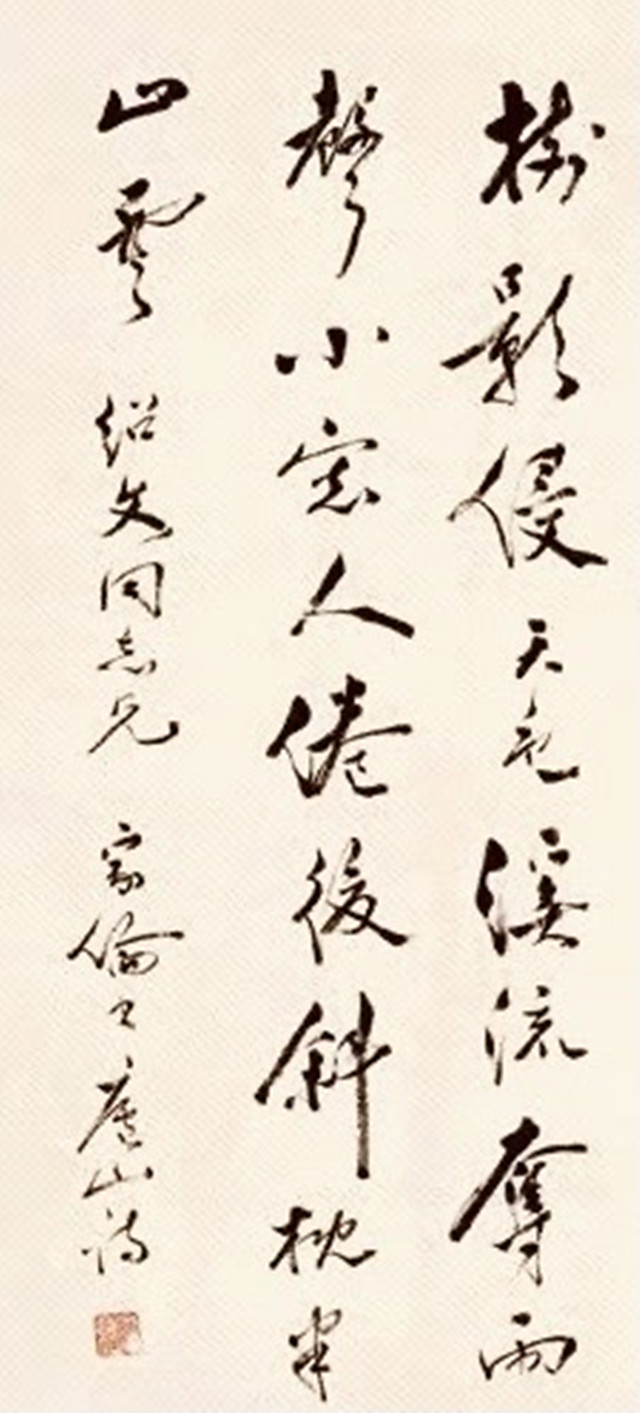 樹影侵天色溪流奪雨
聲小窓人倦後斜枕半
山雲 紹文同志兄 家倫 廬山詩